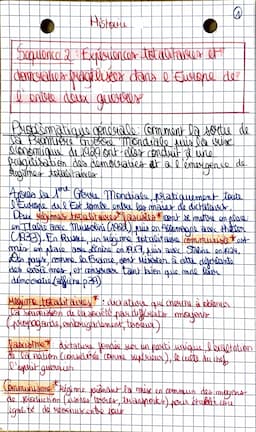 1
Histoire
Sequence 2 : Expériences totalitaires et
démocraties fragilisées dans l'Europe de
l'entre deux guerres
Problématique générale : Comment la sortie de
la Première Guerre Mondiale puis la crise
économique de 1929 ont-elles conduit à une
fragilisation des démocraties et à l'émergence de
régimes totalitaires
Après la 1ère Guerre Mondiale, pratiquement toute
l'Europe de l'Est tombe entre les mains de dictateurs.
Deux régimes totalitaires* fascistes* vont se mettre en place
en Italie avec Mussolini (1922), puis en Allemagne avec Hitler
(1933). En Russie, un régime totalitaire communiste* est
mis en place avec Lénine en 1917, puis avec Staline en
Des pays, comme la France, vont résister à cette
des et conserver tant bien que mal leur
démocratie (affiche p.39)
Régime totalitaire* : dictature qui cherche à obtenir
la soumission de la société par différents moyens
(propagande, embrigadement, terreur)
Fascisme* : dictature fondée sur un parti unique, l'exaltation
de la nation (considérée comme supérieure), le culte du chef,
l'esprit guerrier
Communisme* : Régime prônant la mise en commun des moyens
de production (usines, terres, transports), pour établir une
égalité de revenus entre tous